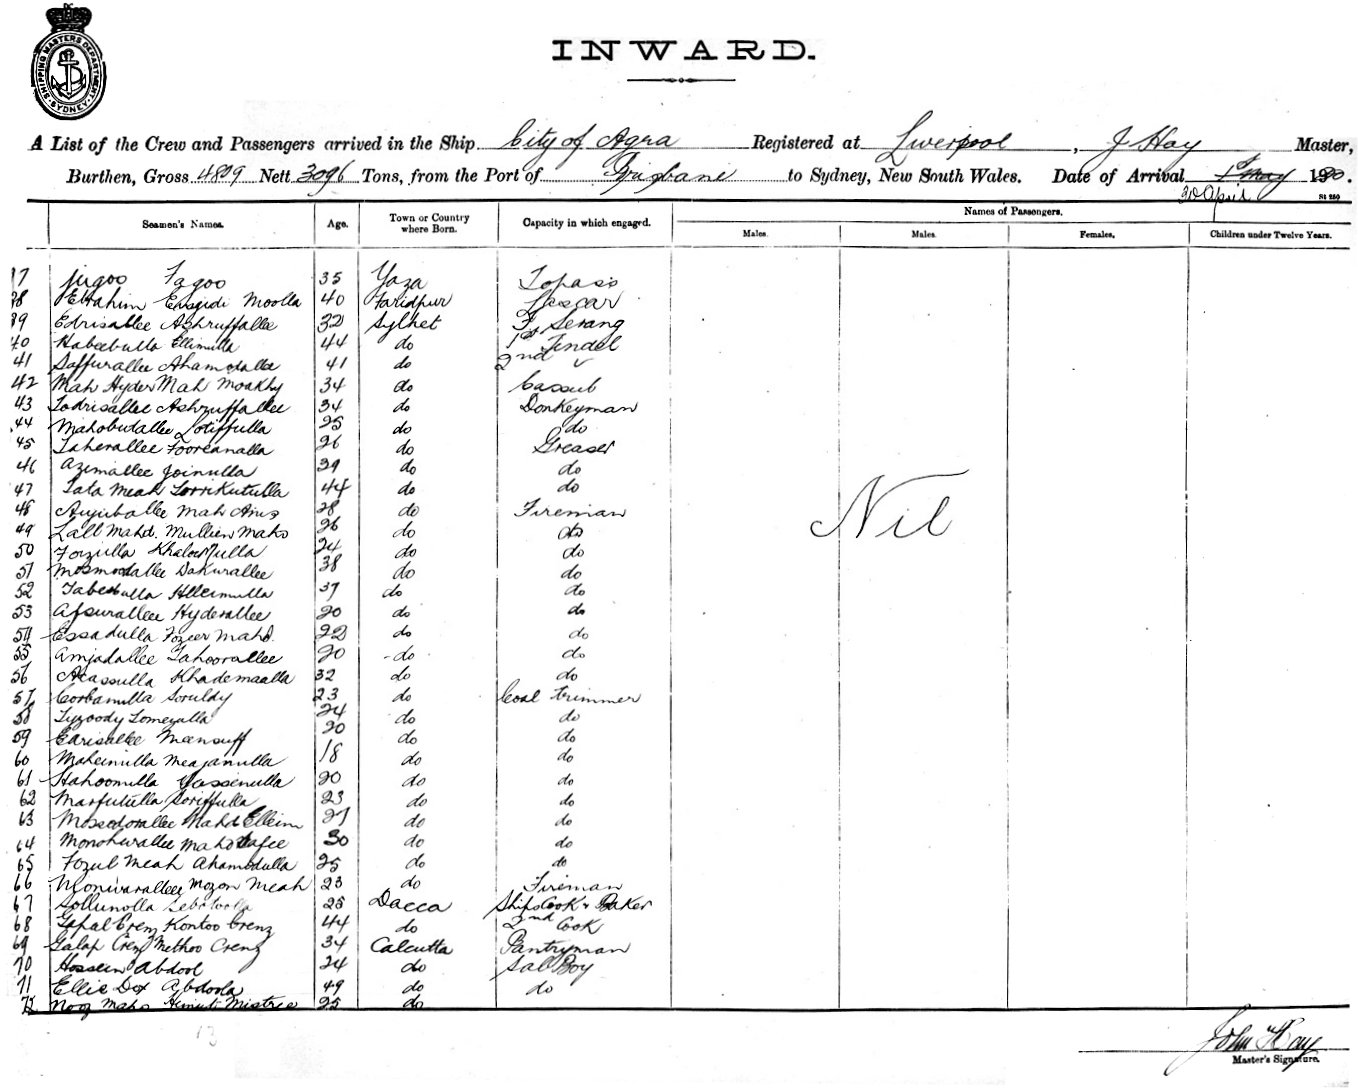 SHIPPING MASTERS DEPARTMENT. SYDNEY
INWARD.
A List of the Crew and Passengers arrived in the Ship City of Agra Registered at Liverpool, J Hay Master,
Burthen, Gross 4809 Nett 3096 Tons, from the Port of Brisbane to Sydney, New South Wales. Date of Arrival 1st May 1920.
30 April St 250
Seamen's Names. Age. Town or Country where Born. Capacity in which engaged. Names of Passengers.
Males. Males. Females. Children under Twelve Years.
37 Jugoo Fagoo 35 Topass
38 Ebrahim Moolla 40 Faridpur Lascar
39 Edrisallee Ashruffallee 32 Sylhet F Serang
40 Habeebulla Ellimulla 44 do 1st Tindel
41 Saffurallee Ahamodalla 41 do 2nd
42 Mah Hyder Mah Moakby 34 do Cassub
43 Todrisallee Ashruffallee 34 do Donkeyman
44 Mahobudallee Lotiffulla 25 do do
45 Taherallee Fooreanalla 26 do Greaser
46 Azimallee Joinulla 39 do do
47 Tata Meah Torrikutulla 44 do do
48 Mah Anis 28 do Fireman
49 Lall Mahd. Mullien Maho 26 do do
50 Fozulla 24 do do
51 Dakurallee 38 do do
52 37 do do
53 Afsurallee Hyderallee 20 do do
54 Essadulla Fozeer Mahd. 22 do do
55 Amjadallee Tahoorallee 20 do do
56 Acassulla Khademaalla 32 do do
57 Corbamulla 23 do Coal trimmer
58 24 do do
59 Earisallee Meensuff 20 do do
60 Maheimulla Meajanulla 18 do do
61 Hahoomulla Yassinulla 20 do do
62 Marfutulla Soriffulla 23 do do
63 Mossodorallee Mahd Elleim 27 do do
64 Monohurallee Mahd Safee 30 do do
65 Fozul Meah Ahamodulla 25 do do
66 Moniwarallee Mozon Meah 23 do Fireman
67 Sollunolla 25 Dacca Ships Cook & Baker
68 Gopal Crenz Kontoo Crenz 44 do 2nd Cook
69 Galap Crenz Methoo Crenz 34 Calcutta Pantryman
70 Hossein Abdool 24 do Sal Boy
71 Ellie Dox Abdoola 49 do do
72 Mistrie 25 do
Nil
John Hay
Master's Signature.